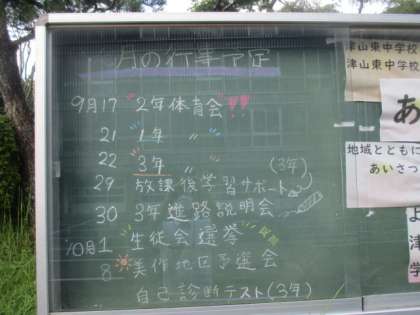 月の行事予定
9月17 2年体育会!!
21 1年 〃 〃
22 3年 〃 〃
29 放課後学習サポート(3年)
30 3年進路説明会
10月1 生徒会選挙
8 美作地区予選会
自己診断テスト(3年)
津山東中学校
津山東中学校
あ
地域ととも
あいさつ
津
学